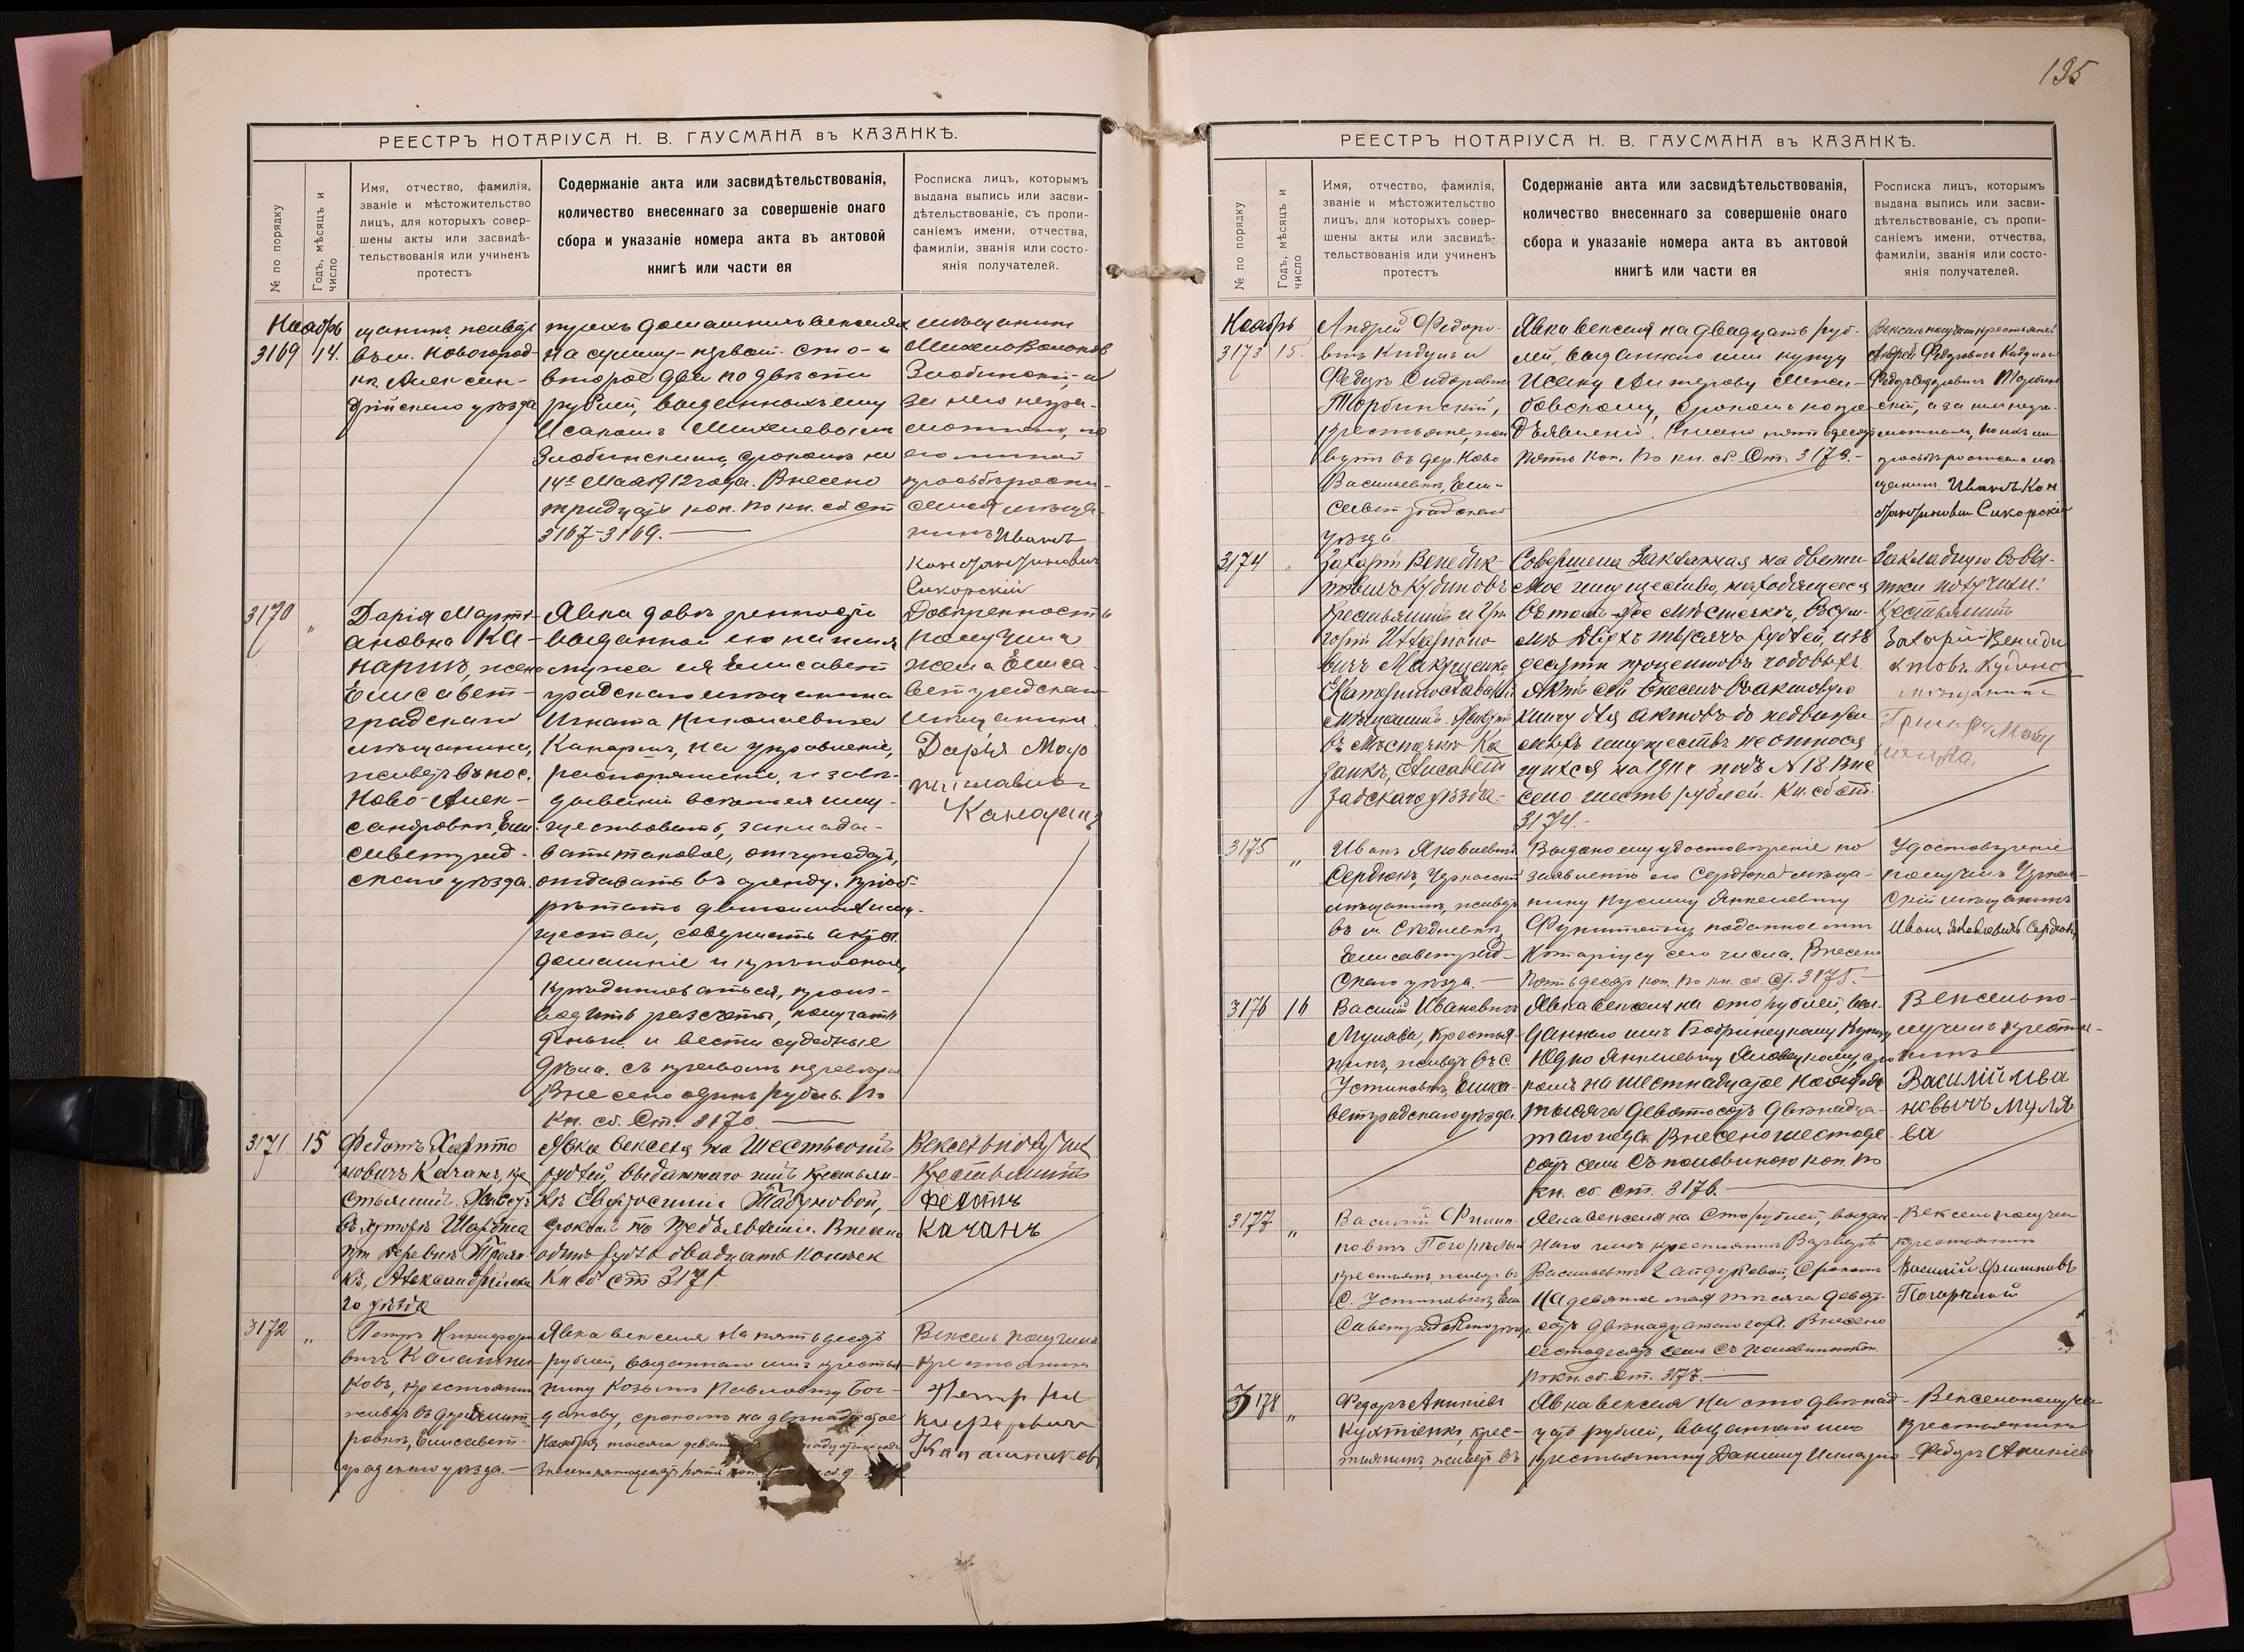 195
РЕЕСТРЪ НОТАРІУСА Н. В. ГАУСМАНА въ КАЗАНКѢ.
№ по порядку
Годъ, мѣсяцъ и
число
Имя, отчество, фамилія,
званіе и мѣстожительство
лицъ, для которыхъ совер-
шены акты или засвидѣ-
тельствованія или учиненъ
протестъ
Содержаніе акта или засвидѣтельствованія,
количество внесеннаго за совершеніе онаго
сбора и указаніе номера акта въ актовой
книгѣ или части ея
Росписка лицъ, которымъ
выдана выпись или засви-
дѣтельствованіе, съ пропи-
саніемъ имени, отчества,
фамиліи, званія или состо-
янія получателей.
Ноябрь
3169 14.
щанинъ, живетъ
въ м. Новогород-
кѣ, Александ-
рійскаго уѣзда
трехъ домашнихъ векселей
на сумму первой сто и
второе два по двѣсти
рублей, выданныхъ ему
Исакомъ
Злобинскимъ, срокомъ на
14е Мая 1912 года. Внесено
тридцать коп. По кн. сб. ст.
3167-3169.
мѣщанинъ
Злобинскій, а
за него негра-
мотнаго, по
его личной
просьбѣ роспи-
сался мѣща-
нинъ Иванъ
Константиновичъ
Сикорскій
3170 "
Дарія Марти-
ановна Ка-
наринъ, жена
Елисавет-
градскаго
мѣщанина,
живетъ въ пос.
Ново-Алек-
сандровкѣ, Ели-
саветград-
скаго уѣзда.
Явка довѣренности
выданной ею на имя
мужа ея Елисавет-
градскаго мѣщанина
Игната Николаевича
Канаринъ, на управленіе,
распоряженіе, и завѣ-
дываніе всѣмъ ея иму-
ществомъ, заклады-
вать таковое, отчуждать,
отдавать въ аренду, пріоб-
рѣтать движимыя иму-
щества, совершать акты
домашніе и крѣпостные,
кредитоваться, произ-
водить разсчеты, получать
деньги и вести судебныя
дѣла. съ правомъ передовѣрія
Внесено одинъ рубль. По
Кн. сб. Ст. 3170.
Довѣренность
получила
жена Елиса-
ветградскаго
мѣщанина
Дарья
Канаринъ
3171 15
Федотъ Харито
новичъ Качанъ, кре
стьянинъ. Живетъ
въ хуторѣ
при деревнѣ
кѣ, Александрійска
го уѣзда
Явка векселя на шестьсотъ
рублей, выданнаго имъ крестьян-
кѣ Евфросиніи Табуновой,
срокомъ по предъявленіи. Внесено
одинъ рубль двадцать копѣек
Кн сб ст 3171.
Вексель получилъ
крестьянинъ
Федотъ
Качанъ
3172 "
Петръ Никифоро
вичъ Калашни-
ковъ, крестьянинъ
градскаго уѣзда.
Явка векселя на пятьдесятъ
рублей, выданнаго имъ крестья-
нину Козьмѣ Павловичу Бог-
данову, срокомъ на двѣнадцатое
Ноября тысяча
Внесено пятьдесятъ пять коп.
Вексель получилъ
крестьянинъ
Петръ Ни
кифоровичъ
Калашниковъ
РЕЕСТРЪ НОТАРІУСА Н. В. ГАУСМАНА въ КАЗАНКѢ.
№ по порядку
Годъ, мѣсяцъ и
число
Имя, отчество, фамилія,
званіе и мѣстожительство
лицъ, для которыхъ совер-
шены акты или засвидѣ-
тельствованія или учиненъ
протестъ
Содержаніе акта или засвидѣтельствованія,
количество внесеннаго за совершеніе онаго
сбора и указаніе номера акта въ актовой
книгѣ или части ея
Росписка лицъ, которымъ
выдана выпись или засви-
дѣтельствованіе, съ пропи-
саніемъ имени, отчества,
фамиліи, званія или состо-
янія получателей.
Ноябрь
3173 15.
Андрей Федоро-
вичъ и
Федоръ Сидоровичъ
Торбинскій,
крестьяне, жи
вутъ въ дер. Ново
Васильевкѣ, Ели-
саветградскаго
уѣзда.
Явка векселя на двадцать руб-
лей, выданнаго ими купцу
Исаку
срокомъ по пре-
дъявленіи. Внесено пятьдесят
пять коп. По кн. сб. Ст. 3173.
Вексель получили крестьяне
Андрей Федоровичъ
Федоръ Сидоровичъ Торбин
скій, а за нихъ негра-
мотныхъ, по ихъ лич
просьбѣ росписался мѣ-
щанинъ Иванъ Кон
стантиновичъ Сикорскій
3174 "
Захарій Венедик-
товичъ Кудиновъ
крестьянинъ и Гри
горій
вичъ Макущенко,
Екатеринославскій
мѣщанинъ. Живутъ
въ мѣстечкѣ Ка
занкѣ, Елисавет
градскаго уѣзда.
Совершена Закладная на движи-
мое имущество, находящееся
въ томъ-же мѣстечкѣ, въ сум-
мѣ двухъ тысячъ рублей изъ
десяти процентовъ годовыхъ.
Актъ сей внесенъ въ актовую
книгу для актовъ до недвижи
мыхъ имуществъ не относя
щихся на 1911 г. подъ N 18. Вне
сено шесть рублей. Кн. сб ст.
3174.
Закладную
получили:
Крестьянинъ
Захарій Венеди
ктовъ Кудинов
мѣщанинъ
3175 "
Иванъ Яковлевичъ
Сердюкъ, Черкасскій
мѣщанинъ, живетъ
въ м.
Елисаветград-
скаго уѣзда.
Выдано ему удостовѣреніе по
заявленію его Сердюка мѣща-
нину Нусину Янкелевичу
поданное мнѣ
Нотаріусу сего числа. Внесено
пятьдесят коп. По кн. сб. Ст. 3175.
Удостовѣреніе
получилъ Черкас-
скій мѣщанинъ
Иванъ Яковлевичъ Сердюкъ
3176 16
Василій Ивановичъ
Мулява, крестья-
нинъ, живетъ въ с.
Устиновкѣ, Елиса-
ветградскаго уѣзда.
Явка векселя на сто рублей, вы-
даннаго имъ Бобринецкому купцу
Юдко Янкелевичу сро
комъ на шестнадцатое Ноября
тысяча девятьсотъ двѣнадца-
таго года. Внесено шестьде-
сятъ семь съ половиною коп. По
кн. сб. Ст. 3176.
Вексель по-
лучилъ крестья-
нинъ
Василій Ива
новычъ Муля
ва
3177 "
Василій Филип-
повичъ Погорѣлый
крестьянинъ, живетъ въ
с. Устиновкѣ, Ели
саветградскаго уѣзда.
Явка векселя на сто рублей, выдан-
наго имъ крестьянкѣ Варварѣ
Васильевнѣ срокомъ
на девятое мая тысяча девять-
сотъ двѣнадцатаго года. Внесено
шестьдесятъ семь съ половиною коп.
По кн. сб. ст. 3177.
Вексель получилъ
крестьянинъ
Василій Филиповъ
Погорѣлый
3178 "
Федоръ Ананіевъ
крес-
тьянинъ, живетъ въ
Явка векселя на сто двѣнад-
цать рублей, выданнаго имъ
крестьянину Данилу
Вексель получилъ
крестьянинъ
Федоръ Ананіевъ